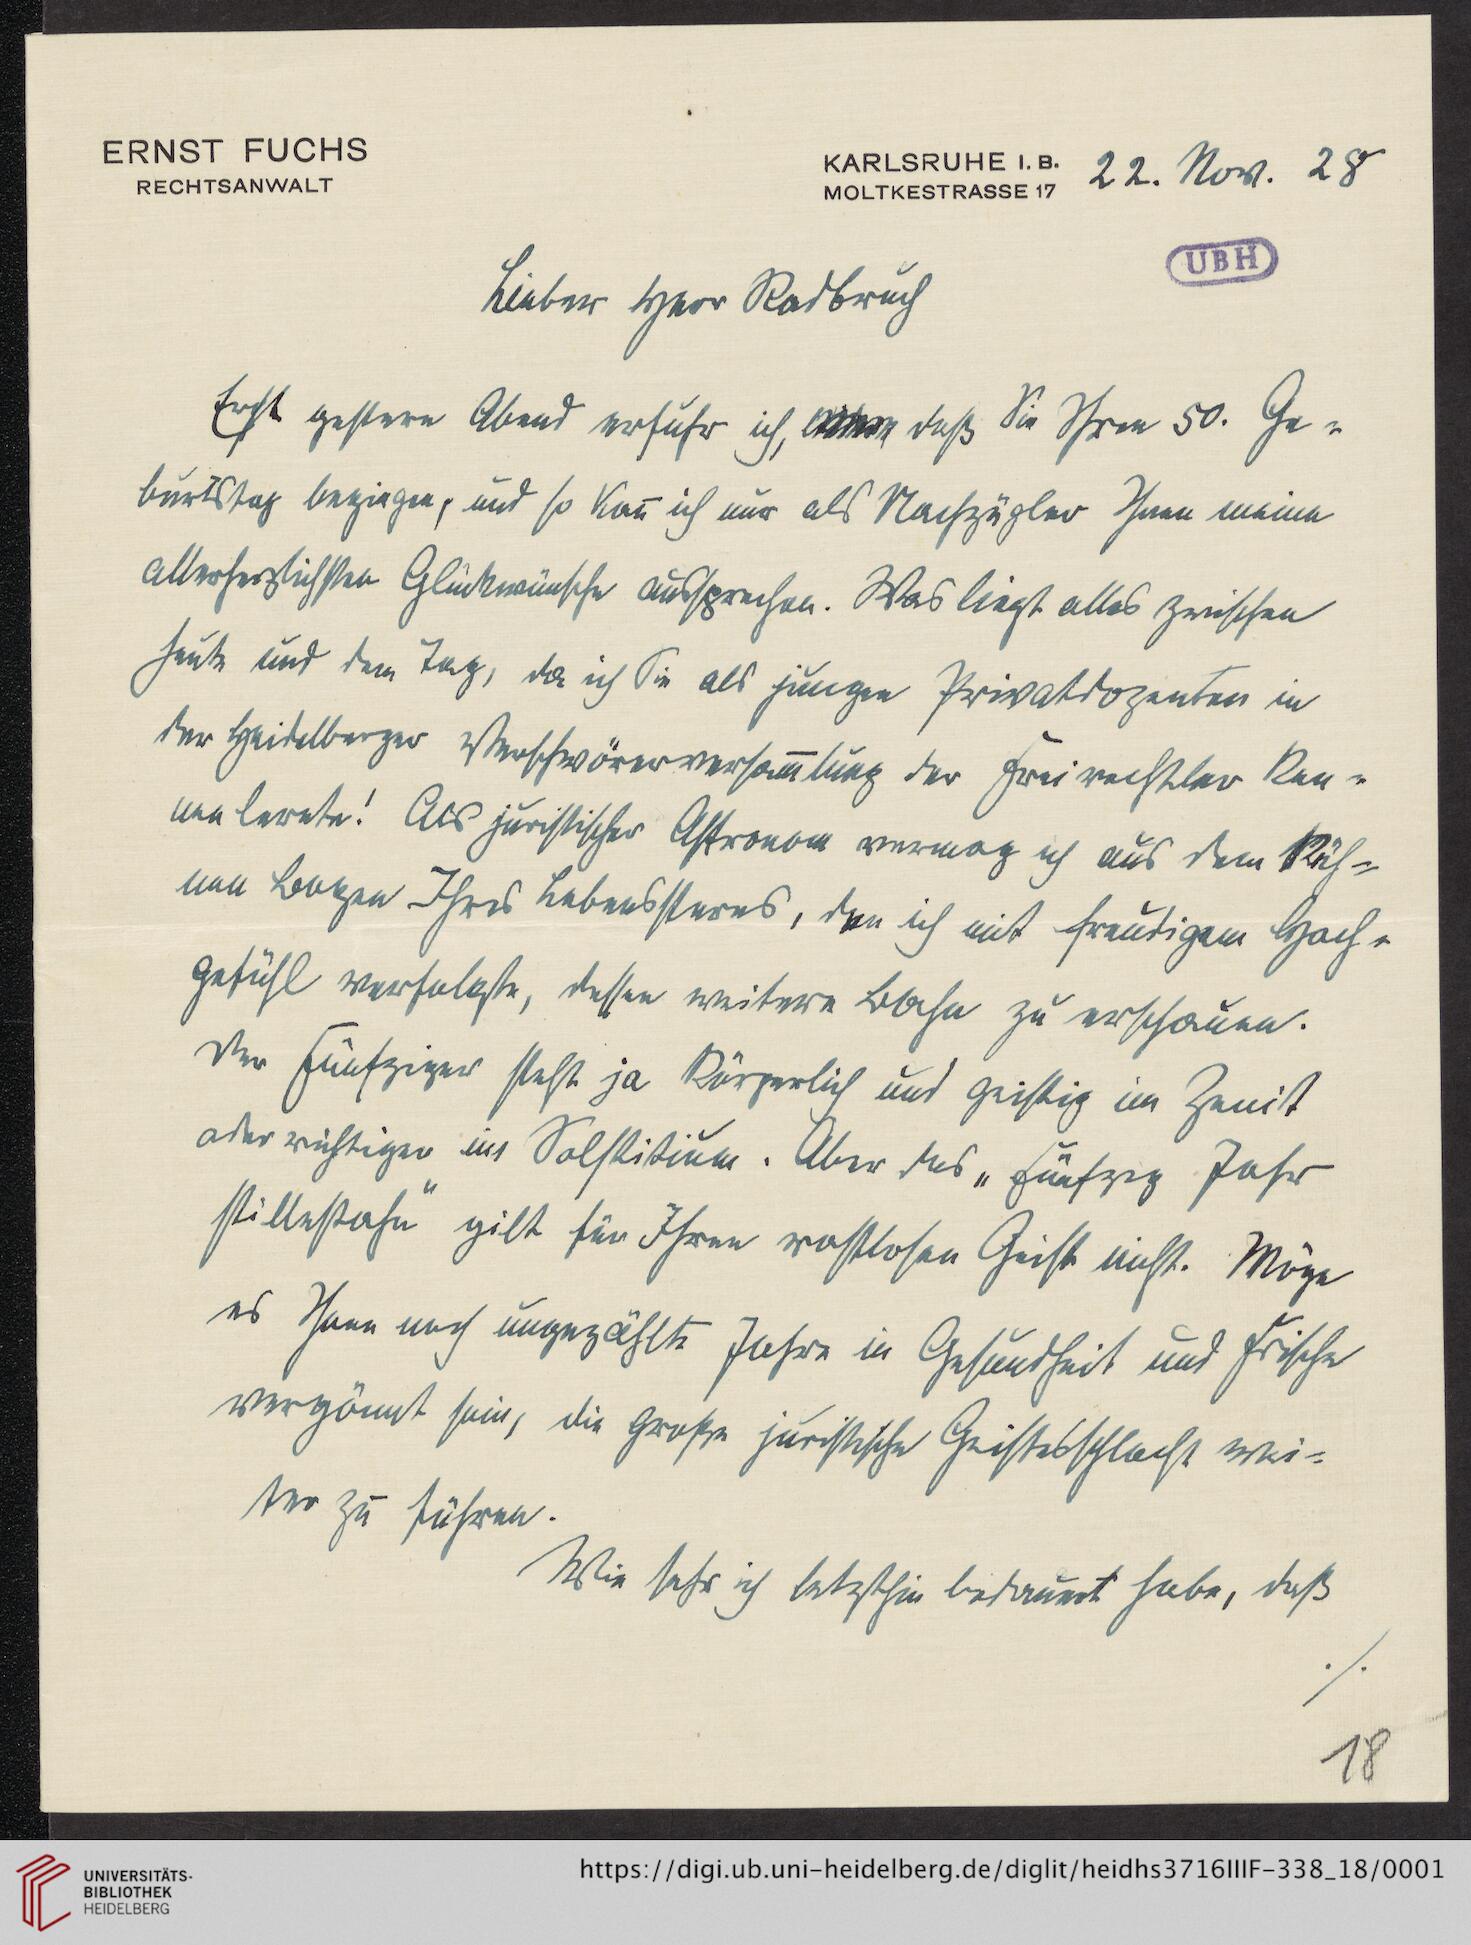 ERNST FUCHS
RECHTSANWALT
KARLSRUHE I. B.
MOLTKESTRASSE 17
22. Nov. 28
UBH
Lieber Herr Radbruch
Erst gestern Abend erfuhr ich, daß Sie Ihren 50. Ge-
burtstag begingen, und so kan̄ ich nur als Nachzügler Ihnen meine
allerherzlichsten Glückwünsche aussprechen. Was liegt alles zwischen
heute und dem Tag, da ich Sie als jungen Privatdozenten in
der Heidelberger Verschwörerversam̄lung der Freirechtler ken-
nen lernte! Als juristischer Astronom vermag ich aus dem küh-
nen Bogen Ihres Lebenssternes, den ich mit freudigem Hoch-
gefühl verfolgte, dessen weitere Bahn zu erschauen.
Der Fünfziger steht ja körperlich und geistig im Zenit
oder richtiger im Solstitium. Aber das „Fünfzig Jahr
stillestahn" gilt für Ihren rastlosen Geist nicht. Möge
es Ihnen noch ungezählte Jahre in Gesundheit und Frische
vergönnt sein, die große juristische Geistesschlacht wei-
ter zu führen.
Wie sehr ich letzthin bedauert habe, daß
./.
18
UNIVERSITÄTS-
BIBLIOTHEK
HEIDELBERG
https://digi.ub.uni-heidelberg.de/diglit/heidhs3716IIIF-338_18/0001